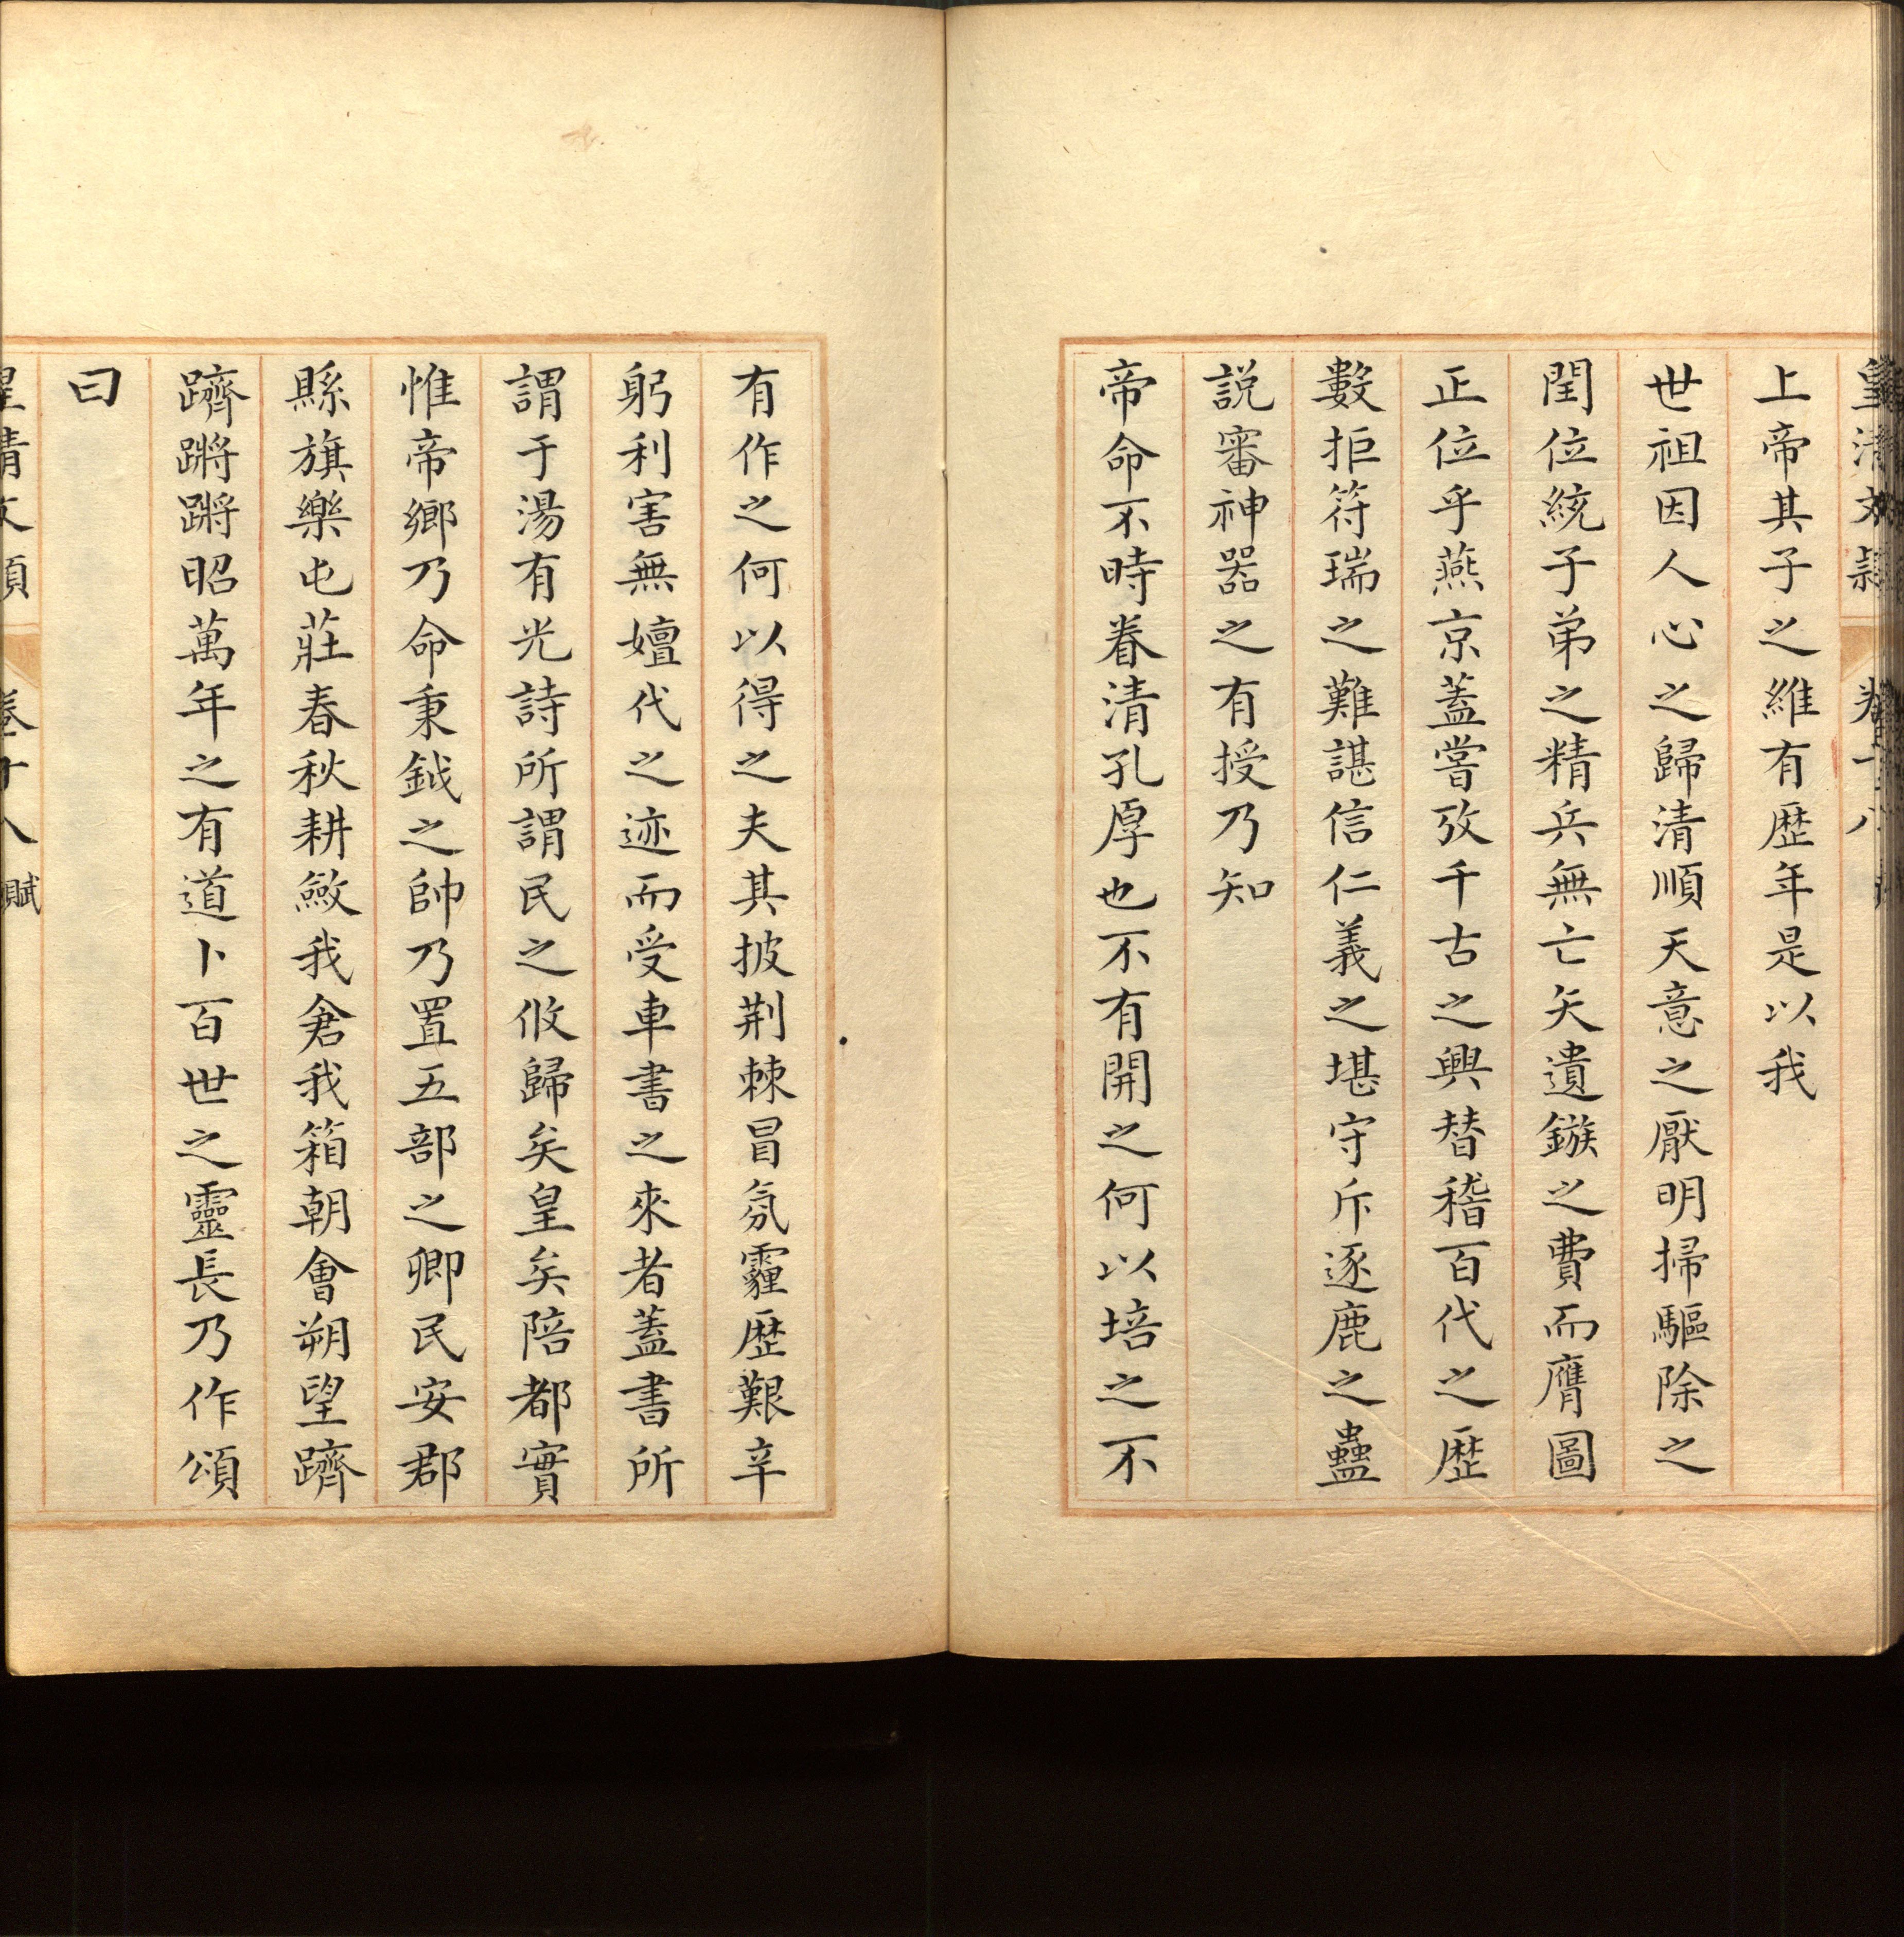 皇清文穎 卷十八
上帝其子之維有歴年是以我
世祖因人心之歸清順天意之厭明掃驅除之
閏位統子弟之精兵無亡矢遺鏃之費而膺圖
正位乎燕京蓋嘗攷千古之興替稽百代之歴
數拒符瑞之難諶信仁義之堪守斥逐鹿之蠱
説審神器之有授乃知
帝命不時眷清孔厚也不有開之何以培之不
有作之何以得之夫其披荆棘冒氛霾歴艱辛
躬利害無嬗代之迹而受車書之來者蓋書所
謂于湯有光詩所謂民之攸歸矣皇矣陪都實
惟帝鄉乃命秉鉞之帥乃置五部之卿民安郡
縣旗樂屯莊春秋耕斂我倉我箱朝會朔望躋
躋蹡蹡昭萬年之有道卜百世之靈長乃作頌
曰
皇清文穎 卷十八 賦